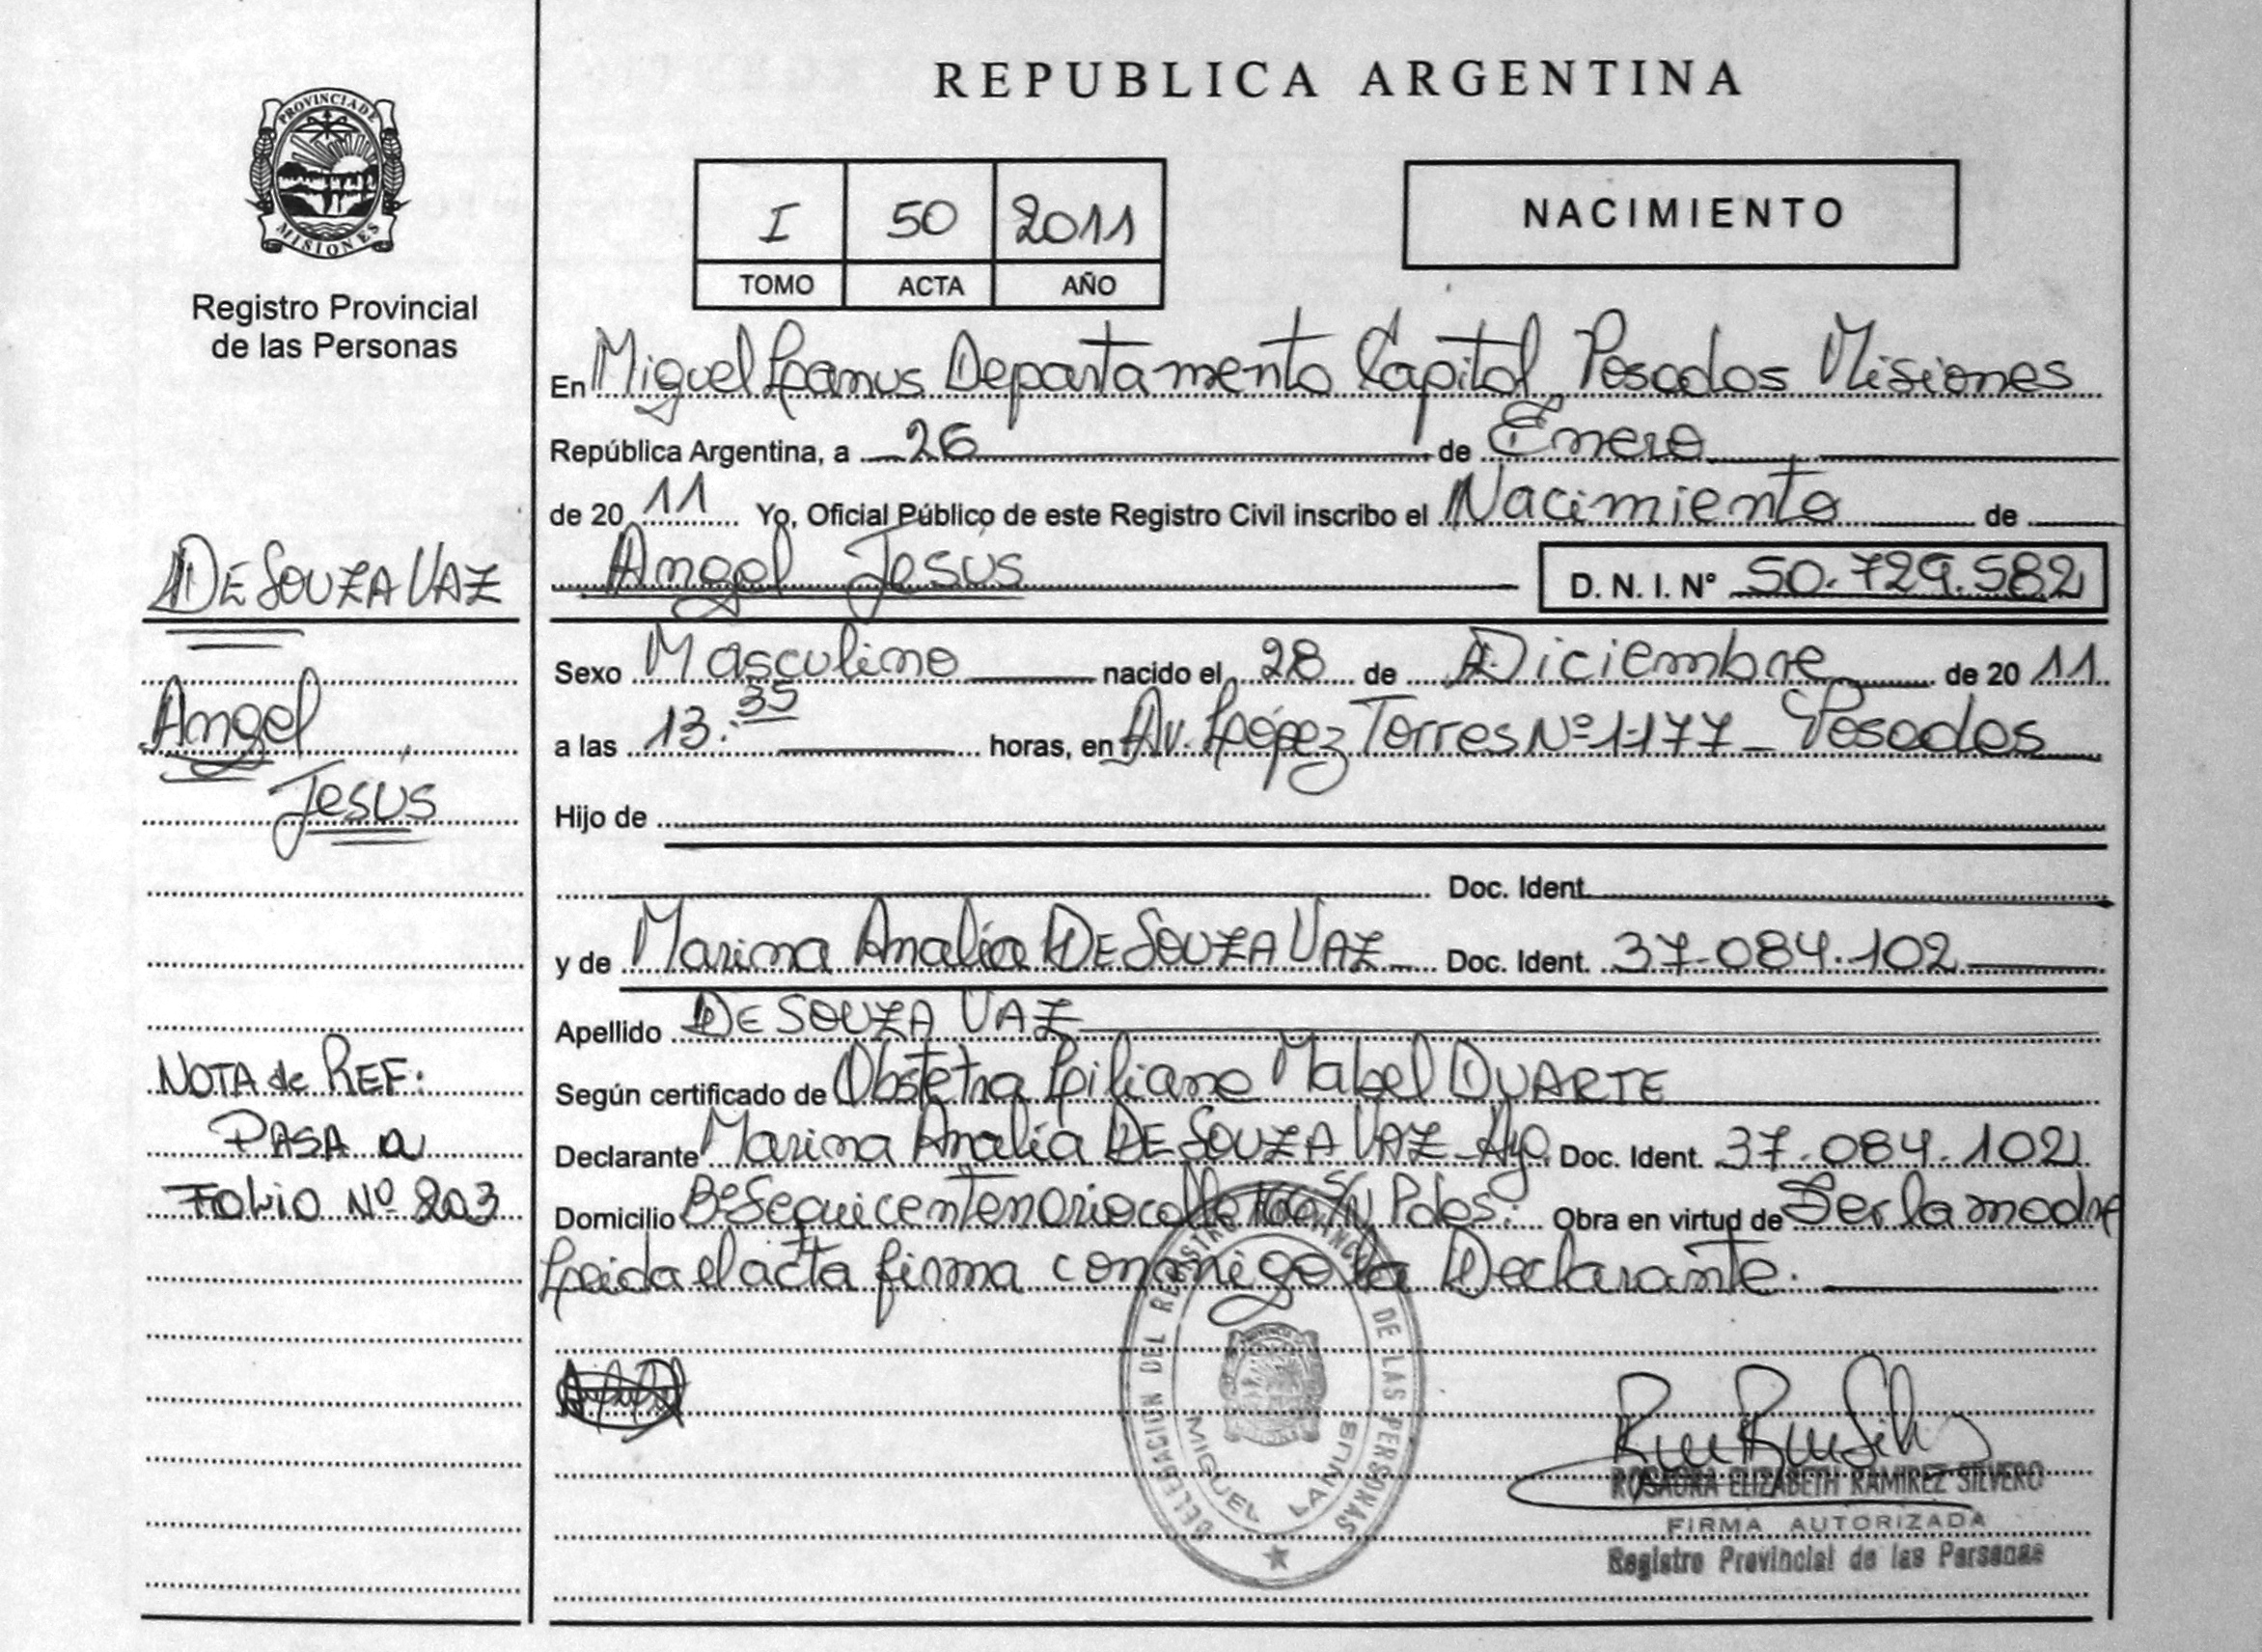 REPUBLICA ARGENTINA
PROVINCIA DE
MISIONES
Registro Provincial
de las Personas
I 50 2011
TOMO ACTA AÑO
NACIMIENTO
En Miguel Lanus Departamento Capital Posadas Misiones
República Argentina, a 26 de Enero
de 20 11 Yo, Oficial Público de este Registro Civil inscribo el Nacimiento de
Angel Jesús D. N. I. Nº 50.729.582
Sexo Masculino nacido el 28 de Diciembre de 20 11
a las 13:35 horas, en Av. López Torres Nº 1177 - Posadas
Hijo de
Doc. Ident.
y de Marina Analía DE SOUZA VAZ Doc. Ident. 37.084.102
Apellido DE SOUZA VAZ
Según certificado de Obstetra Liliana Mabel DUARTE
Declarante Marina Analía DE SOUZA VAZ Doc. Ident. 37.084.102
Domicilio Bº Sequicentenario calle S/N Pdas. Obra en virtud de Ser la madre
Leida el acta firma conmigo la Declarante.
DE SOUZA VAZ
Angel
Jesus
NOTA de REF:
PASA a
FOLIO Nº 203
DELEGACION DEL REGISTRO DE LAS PERSONAS
MIGUEL LANUS
ROSAURA ELIZABETH RAMIREZ SILVERO
FIRMA AUTORIZADA
Registro Provincial de las Personas